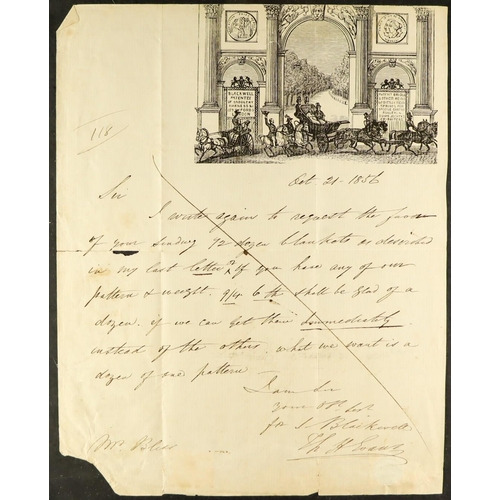 BLACKWELL
PATENTEE
118
Oct 21 - 1856
Sir
I write again to request the favor
of your sending 1/2 dozen blankets as desired
in my last letter If you have any of our
pattern & weight 9/4 6 lb shall be glad of a
dozen if we can get them immediately
instead of the others what we want is a
dozen of one pattern
I am Sir
your
for S Blackwell
Mr Bliss